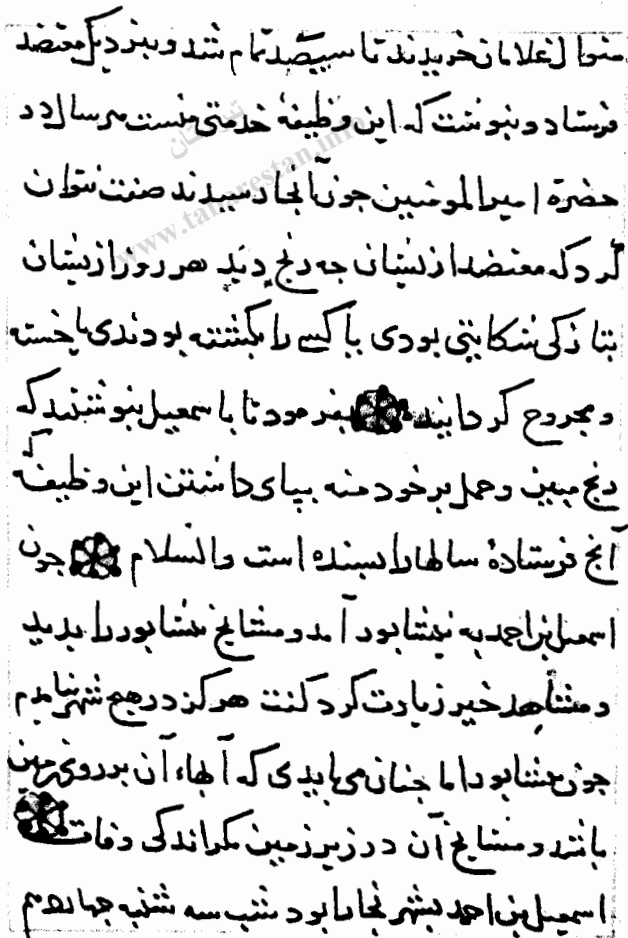 منوال غلامان خریدند تا سیصد تمام شد و بنزدیک معتضد
فرستاد و بنوشت که این وظیفهٔ خدمتی منست هر سال در
حضرة امیر المومنین جون آنجا رسیدند صفت نتوان
کرد که معتضد از یشان جه رنج دید هر روز از یشان
بتازکی شکایتی بودی یا کسی را بکشته بودندی یا خسته
و مجروح کردانیده بفرمود تا با سمعیل بنوشتند که
رنج مبین و حمل بر خود منه بپای داشتن این وظیفه که
آنج فرستادهٔ سالها را بسنده است والسلام جون
اسمعیل بن احمد به نیشابور آمد و مشایخ نیشابور را بدید
و مشاهد خیر زیارت کرد کفت هرکز در هیج شهر نیامدم
جون نیشابور اما جنان می بایدی که آبهاء آن بر روی زمین
باشد و مشایخ آن در زیر زمین مکر اندکی وفات
اسمعیل بن احمد بشهر بخارا بود شب سه شنبه جهاردهم
www.tabarestan.info
تبرستان